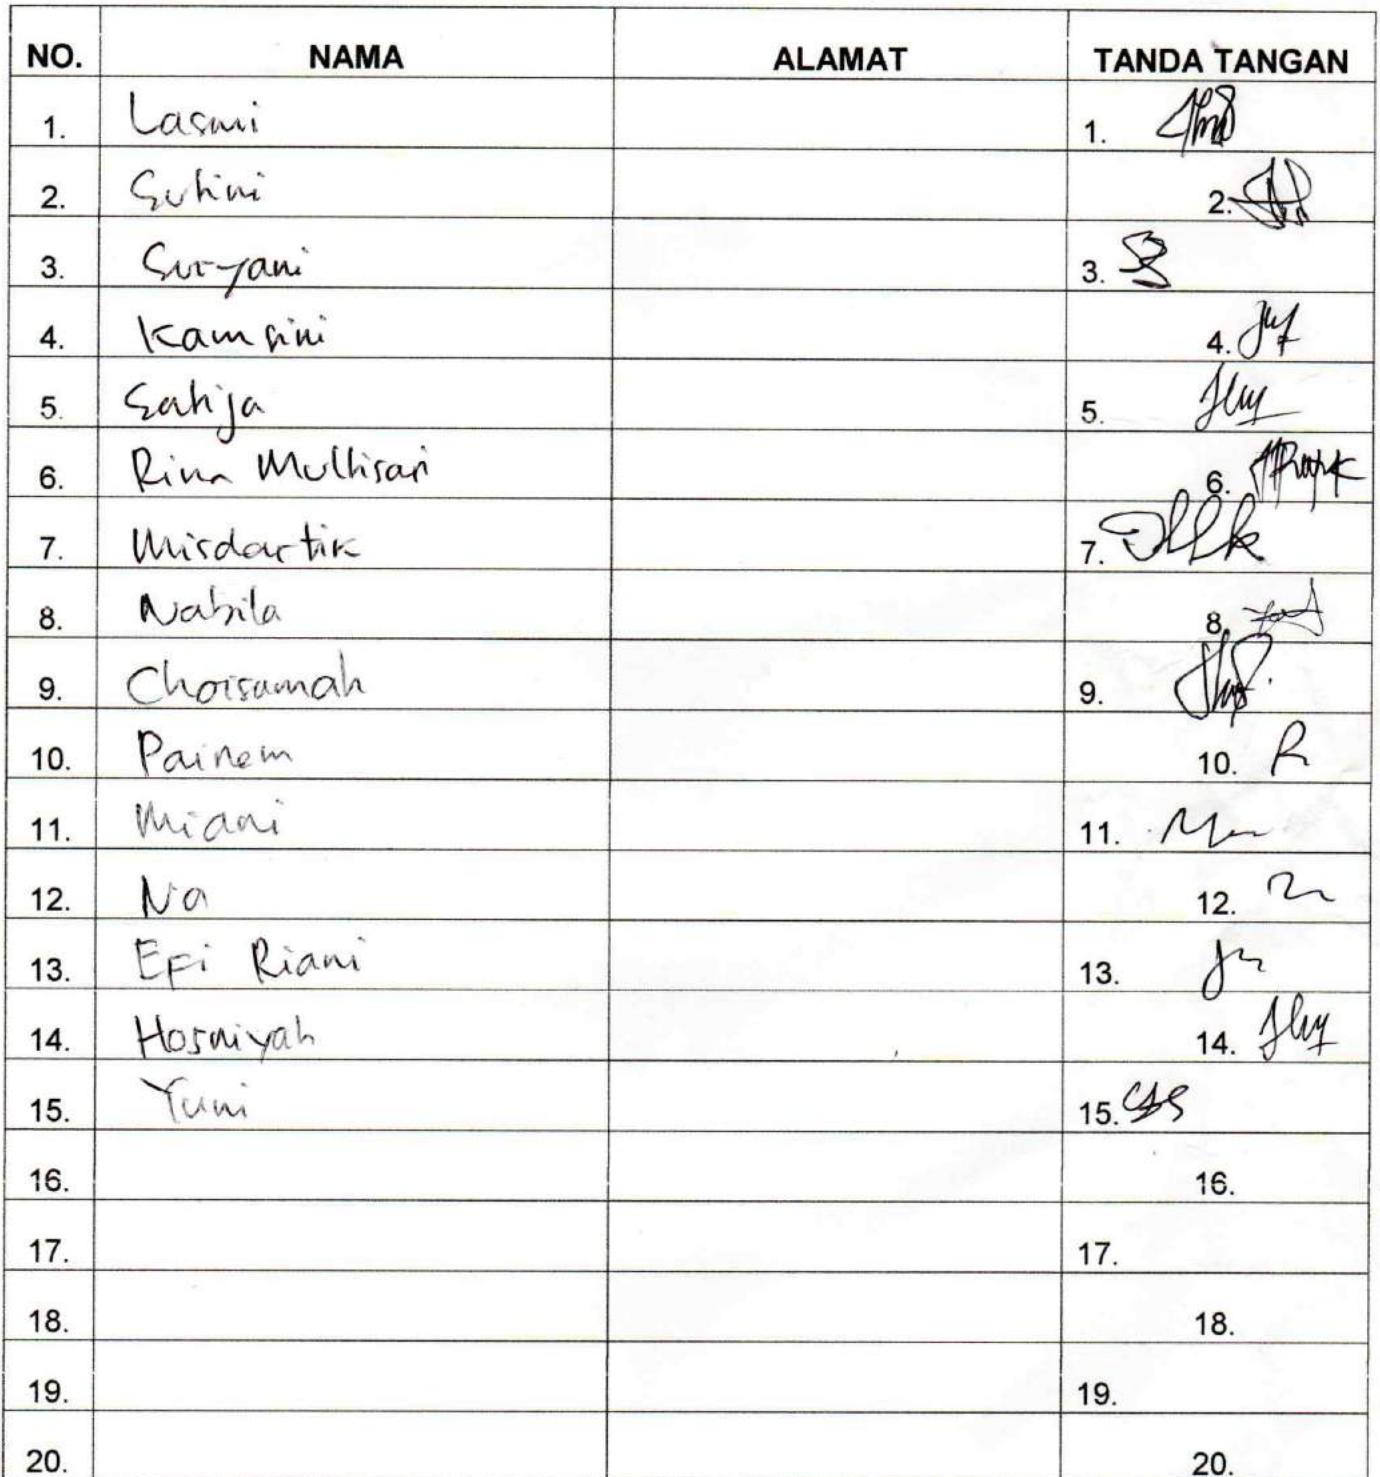 NO. NAMA ALAMAT TANDA TANGAN
1. Lasmi 1.
2. Sutini 2.
3. Suryani 3.
4. Kamsini 4.
5. Satija 5.
6. Rina Mullisari 6.
7. Misdartik 7.
8. Nabila 8.
9. Choisamah 9.
10. Painem 10.
11. Miani 11.
12. Na 12.
13. Efi Riani 13.
14. Hosniyah 14.
15. Yuni 15.
16. 16.
17. 17.
18. 18.
19. 19.
20. 20.